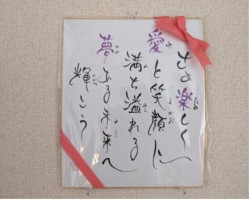 楽しく
愛と笑顔に
満ち溢れる
夢ある未来へ
輝こう